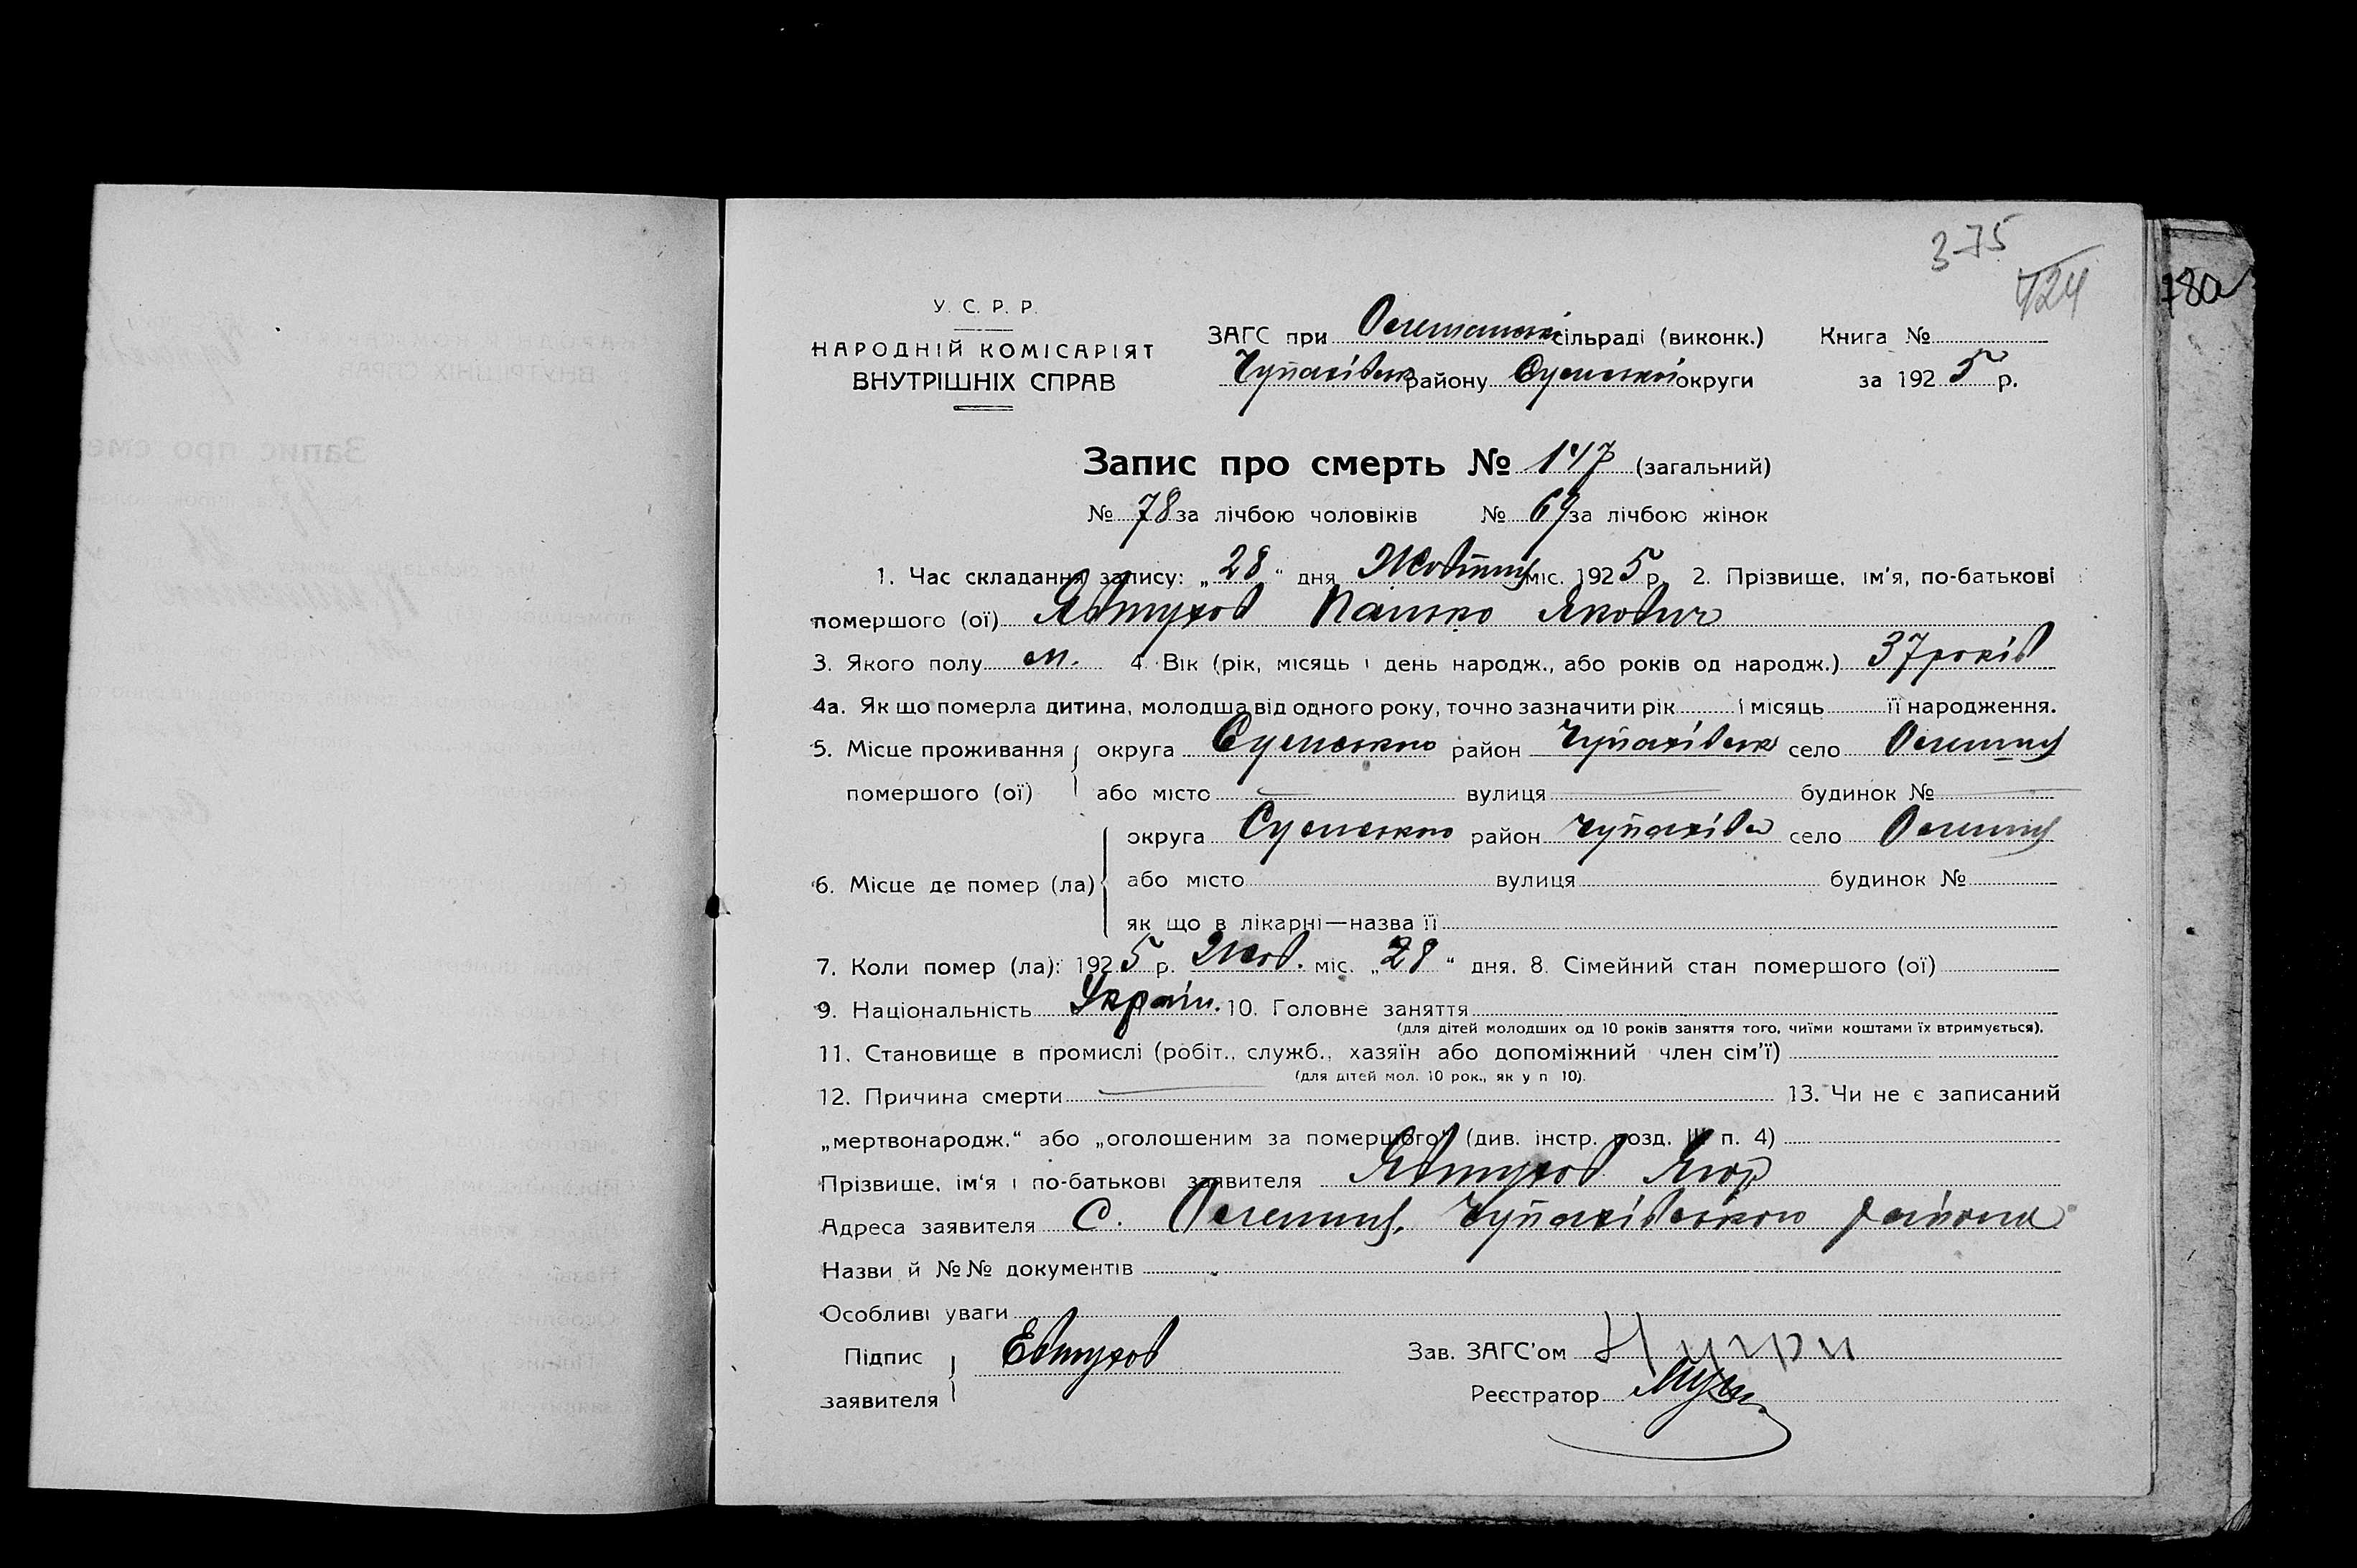 375
424
780
У. С. Р. Р.
НАРОДНІЙ КОМІСАРІЯТ
ВНУТРІШНІХ СПРАВ
ЗАГС при сільраді (виконк.) Книга №
Чупахівськ району Сумської округи за 1925 р.
Запис про смерть № 147 (загальний)
№ 78 за лічбою чоловіків № 69 за лічбою жінок
1. Час складання запису: „28“ дня Жовтня міс. 1925 р. 2. Прізвище, ім'я, по-батькові
помершого (ої) Явтухов Панько Якович
3. Якого полу м. 4. Вік (рік, місяць і день народж., або років од народж.) 37 років
4а. Як що померла дитина, молодша від одного року, точно зазначити рік і місяць її народження.
5. Місце проживання округа Сумською район Чупахівськ село Олешня
помершого (ої) або місто вулиця будинок №
округа Сумською район Чупахівс село Олешня
6. Місце де помер (ла) або місто вулиця будинок №
як що в лікарні—назва її
7. Коли помер (ла): 1925 р. Жов. міс. „28“ дня. 8. Сімейний стан помершого (ої)
9. Національність Україн. 10. Головне заняття
(для дітей молодших од 10 років заняття того, чиїми коштами їх втримується).
11. Становище в промислі (робіт., служб., хазяїн або допоміжний член сім'ї)
(для дітей мол. 10 рок., як у п 10).
12. Причина смерти 13. Чи не є записаний
„мертвонародж.“ або „оголошеним за помершого“ (див. інстр. розд. III п. 4)
Прізвище, ім'я і по-батькові заявителя Явтухов Ягор
Адреса заявителя С. Олешня, Чупахівського району
Назви й №№ документів
Особливі уваги
Підпис Евтухов Зав. ЗАГС'ом
заявителя Реєстратор